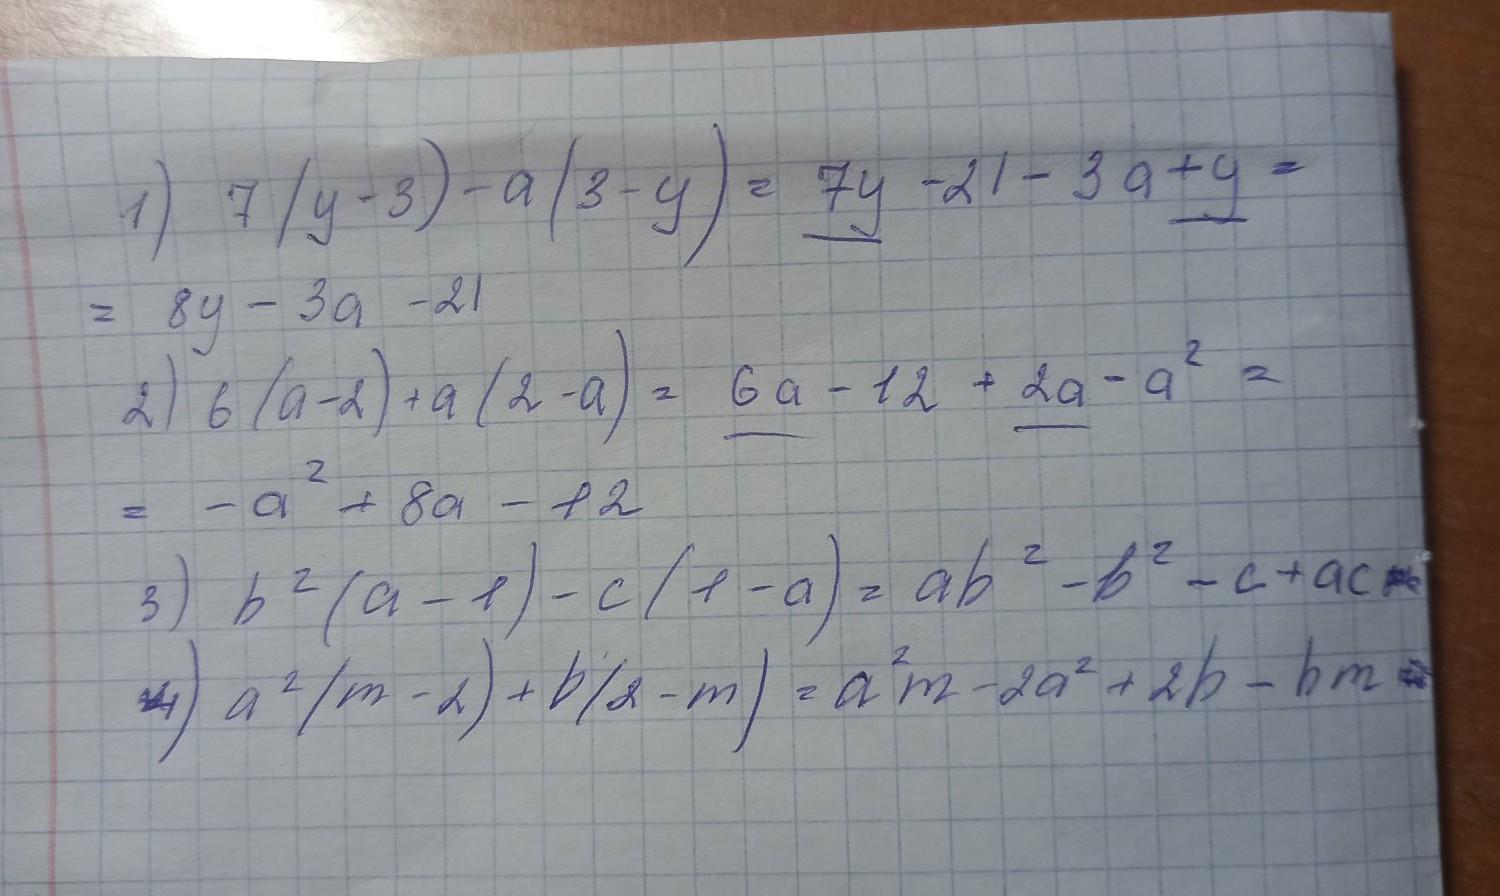 1) 7(y-3)-a(3-y) = 7y -21 - 3a +y =
= 8y - 3a -21
2) 6(a-2)+a(2-a) = 6a - 12 + 2a - a² =
= -a² + 8a - 12
3) b²(a-1)-c(1-a) = ab² - b² - c + ac
4) a²(m-2)+b(2-m) = a²m - 2a² + 2b - bm